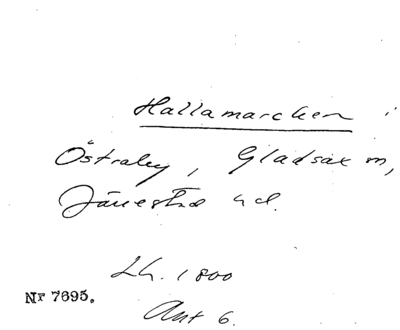 Hallamarcken i
Östraby, Gladsax sn,
Järrestad hd.
Lh. 1800
Nr 7695.
Akt 6.